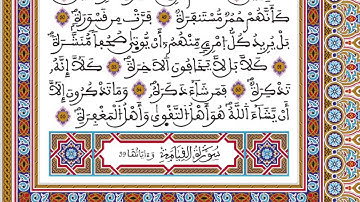 كَأَنَّهُمْ حُمُرٌ مُّسْتَنفِرَةٌ ۝ فَرَّتْ مِن قَسْوَرَةٍ ۝
بَلْ يُرِيدُ كُلُّ امْرِئٍ مِّنْهُمْ أَن يُؤْتَىٰ صُحُفًا مُّنَشَّرَةً ۝
كَلَّا بَل لَّا يَخَافُونَ الْآخِرَةَ ۝ كَلَّا إِنَّهُ
تَذْكِرَةٌ ۝ فَمَن شَاءَ ذَكَرَهُ ۝ وَمَا تَذْكُرُونَ إِلَّا
أَن يَشَاءَ اللَّهُ هُوَ أَهْلُ التَّقْوَىٰ وَأَهْلُ الْمَغْفِرَةِ ۝
سُورَةُ الْقِيَامَةِ